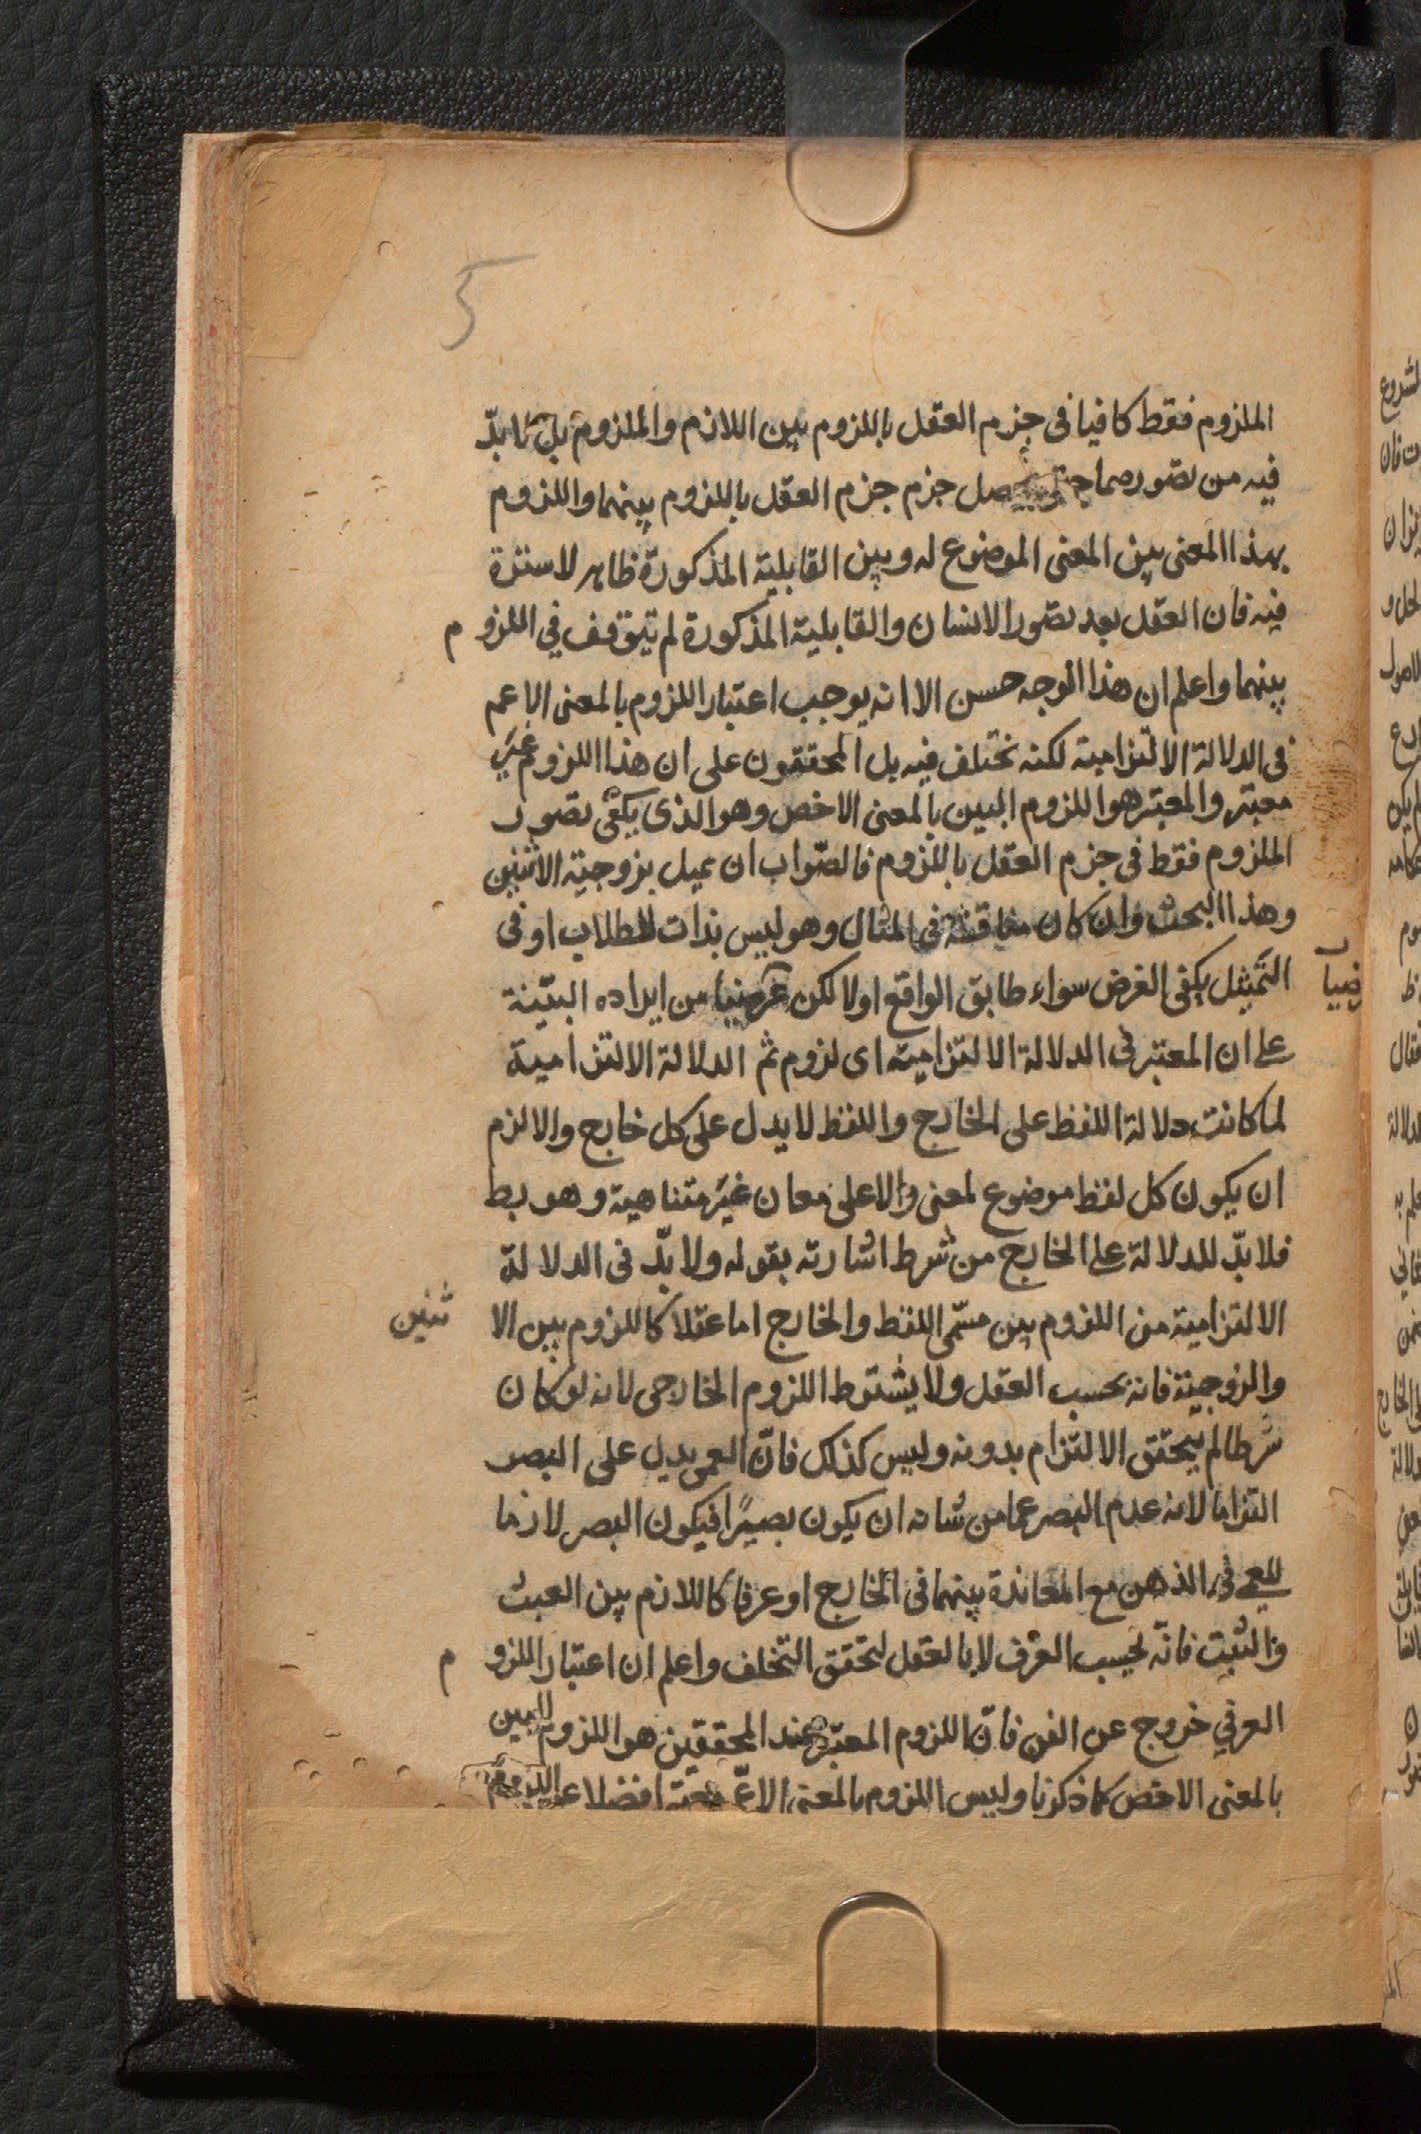 5
الملزوم فقط كافيا فى جزم العقل باللزوم بين اللازم والملزوم بل لا بدّ
فيه من تصورهما حتى يحصل جزم جزم العقل باللزوم بينهما واللزوم
بهذا المعنى بين المعنى الموضوع له وبين القابلية المذكورة ظاهر لا سترة
فيه فان العقل بعد تصور الانسان والقابلية المذكورة لم يتوقف في اللزو م
بينهما واعلم ان هذا الوجه حسن الا انه يوجب اعتبار اللزوم بالمعنى الاعم
فى الدلالة الالتزامية لكنه مختلف فيه بل المحققون على ان هذا اللزوم غير
معتبر والمعتبر هو اللزوم البين بالمعنى الاخص وهو الذى يكفى تصور
الملزوم فقط فى جزم العقل باللزوم فالصّواب ان يمثل بزوجية الاثنين
وهذا البحث وان كان مناقشة فى المثال وهو ليس بذات للطلاب او فى
التمثيل يكفى الغرض سواء طابق الواقع اولا لكن غرضنا من ايراده البيّنة
على ان المعتبر فى الدلالة الالتزامية اى لزوم ثم الدلالة الالتزامية
لما كانت دلالة اللفظ على الخارج واللفظ لا يدل على كل خارج والا لزم
ان يكون كل لفظ موضوع لمعنى دالا على معان غير متناهية وهو بط
فلا بدّ للدلالة على الخارج من شرط اشار ته بقوله ولا بدّ فى الدلالة
الالتزامية من اللزوم بين مسمّى اللفظ والخارج اما عقلا كاللزوم بين الا ثنين
والزوجية فانه بحسب العقل ولا يشترط اللزوم الخارجى لانه لو كان
شرطا لم يتحقق الالتزام بدونه وليس كذلك فانّ العمى يدل على البصر
التزاما لانه عدم البصر عما من شانه ان يكون بصيرًا فيكون البصر لازما
للعمى فى الذهن مع المعاندة بينهما فى الخارج او عرفا كاللازم بين العبث
فانّه بحسب العرف لا بالعقل لتحقق التخلف واعلم ان اعتبار اللزو م
العرفي خروج عن الفن فانّ اللزوم المعتبر عند المحققين هو اللزوم البين
بالمعنى الاخص كما ذكرنا وليس اللزوم بالمعنى الاعمّ معتبرا فضلا عن